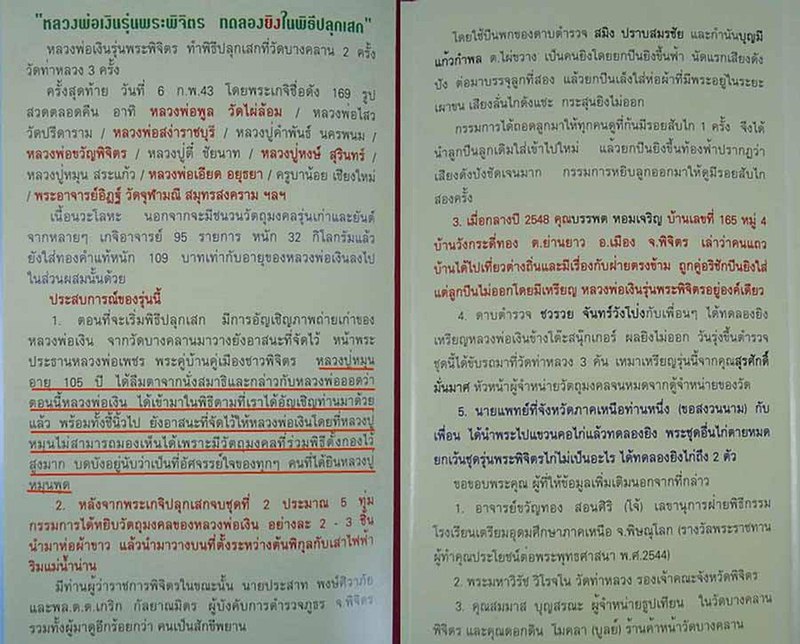 "หลวงพ่อเงินรุ่นพระพิจิตร ทดลองยิงในพิธีปลุกเสก"
หลวงพ่อเงินรุ่นพระพิจิตร ทำพิธีปลุกเสกที่วัดบางคลาน 2 ครั้ง
วัดท่าหลวง 3 ครั้ง
ครั้งสุดท้าย วันที่ 6 ก.พ.43 โดยพระเกจิชื่อดัง 169 รูป
สวดตลอดคืน อาทิ หลวงพ่อพูล วัดไผ่ล้อม / หลวงพ่อไสว
วัดปรีดาราม / หลวงพ่อสง่าราชบุรี / หลวงปู่คำพันธ์ นครพนม /
หลวงพ่อขวัญพิจิตร / หลวงปู่ตี๋ ชัยนาท / หลวงปู่หงษ์ สุรินทร์ /
หลวงปู่หมุน สระแก้ว / หลวงพ่อเอียด อยุธยา / ครูบาน้อย เชียงใหม่
/ พระอาจารย์อิฏฐ์ วัดจุฬามณี สมุทรสงคราม ฯลฯ
เนื้อนวะโลหะ นอกจากจะมีชนวนวัตถุมงคลรุ่นเก่าและยันต์
จากหลายๆ เกจิอาจารย์ 95 รายการ หนัก 32 กิโลกรัมแล้ว
ยังใส่ทองคำแท้หนัก 109 บาทเท่ากับอายุของหลวงพ่อเงินลงไป
ในส่วนผสมนั้นด้วย
ประสบการณ์ของรุ่นนี้
1. ตอนที่จะเริ่มพิธีปลุกเสก มีการอัญเชิญภาพถ่ายเก่าของ
หลวงพ่อเงิน จากวัดบางคลานมาวางยังอาสนะที่จัดไว้ หน้าพระ
ประธานหลวงพ่อเพชร พระคู่บ้านคู่เมืองชาวพิจิตร หลวงปู่หมุน
อายุ 105 ปี ได้ลืมตาจากนั่งสมาธิและกล่าวกับหลวงพ่อออดว่า
ตอนนี้หลวงพ่อเงิน ได้เข้ามาในพิธีตามที่เราได้อัญเชิญท่านมาด้วย
แล้ว พร้อมทั้งชี้นิ้วไป ยังอาสนะที่จัดไว้ให้หลวงพ่อเงินโดยที่หลวงปู่
หมุนไม่สามารถมองเห็นได้เพราะมีวัตถุมงคลที่ร่วมพิธีตั้งกองไว้
สูงมาก บดบังอยู่นับว่าเป็นที่อัศจรรย์ใจของทุกๆ คนที่ได้ยินหลวงปู่
หมุนพูด
2. หลังจากพระเกจิปลุกเสกจบชุดที่ 2 ประมาณ 5 ทุ่ม
กรรมการได้หยิบวัตถุมงคลของหลวงพ่อเงิน อย่างละ 2 - 3 ชิ้น
นำมาห่อผ้าขาว แล้วนำมาวางบนที่ตั้งระหว่างต้นพิกุลกับเสาไฟฟ้า
ริมแม่น้ำน่าน
มีท่านผู้ว่าราชการพิจิตรในขณะนั้น นายประสาท พงษ์ศิวาภัย
และพล.ต.ต.เกริก กัลยาณมิตร ผู้บังคับการตำรวจภูธร จ.พิจิตร
รวมทั้งผู้มาดูอีกร้อยกว่า คนเป็นสักขีพยาน
โดยใช้ปืนพกของดาบตำรวจ สมิง ปราบสมรชัย และกำนันบุญมี
แก้วกำพล ต.ไผ่ขวาง เป็นคนยิงโดยยกปืนยิงขึ้นฟ้า นัดแรกเสียงดัง
ปัง ต่อมาบรรจุลูกที่สอง แล้วยกปืนเล็งใส่ห่อผ้าที่มีพระอยู่ในระยะ
เผาขน เสียงลั่นไกดังแชะ กระสุนยิงไม่ออก
กรรมการได้ถอดลูกมาให้ทุกคนดูที่ก้นมีรอยสับไก 1 ครั้ง จึงได้
นำลูกปืนลูกเดิมใส่เข้าไปใหม่ แล้วยกปืนยิงขึ้นท้องฟ้าปรากฏว่า
เสียงดังปังชัดเจนมาก กรรมการหยิบลูกออกมาให้ดูมีรอยสับไก
สองครั้ง
3. เมื่อกลางปี 2548 คุณบรรพต หอมเจริญ บ้านเลขที่ 165 หมู่ 4
บ้านวังกระดี่ทอง ต.ย่านยาว อ.เมือง จ.พิจิตร เล่าว่าคนแถว
บ้านได้ไปเที่ยวต่างถิ่นและมีเรื่องกับฝ่ายตรงข้าม ถูกคู่อริชักปืนยิงใส่
แต่ลูกปืนไม่ออกโดยมีเหรียญ หลวงพ่อเงินรุ่นพระพิจิตรอยู่องค์เดียว
4. ดาบตำรวจ ชวรวย จันทร์วังโปงกับเพื่อนๆ ได้ทดลองยิง
เหรียญหลวงพ่อเงินข้างโต๊ะสนุ๊กเกอร์ ผลยิงไม่ออก วันรุ่งขึ้นตำรวจ
ชุดนี้ได้ขับรถมาที่วัดท่าหลวง 3 คัน เหมาเหรียญรุ่นนี้จากคุณสุรศักดิ์
มั่นมาศ หัวหน้าผู้จำหน่ายวัตถุมงคลจนหมดจากตู้จำหน่ายของวัด
5. นายแพทย์ที่จังหวัดภาคเหนือท่านหนึ่ง (ขอสงวนนาม) กับ
เพื่อน ได้นำพระไปแขวนคอไก่แล้วทดลองยิง พระชุดอื่นไก่ตายหมด
ยกเว้นชุดรุ่นพระพิจิตรไก่ไม่เป็นอะไร ได้ทดลองยิงไก่ถึง 2 ตัว
ขอขอบพระคุณ ผู้ที่ให้ข้อมูลเพิ่มเติมนอกจากที่กล่าว
1. อาจารย์ขวัญทอง สอนศิริ (โจ้) เลขานุการฝ่ายพิธีกรรม
โรงเรียนเตรียมอุดมศึกษาภาคเหนือ จ.พิษณุโลก (รางวัลพระราชทาน
ผู้ทำคุณประโยชน์ต่อพระพุทธศาสนา พ.ศ.2544)
2. พระมหาวิรัช วิโรจโน วัดท่าหลวง รองเจ้าคณะจังหวัดพิจิตร
3. คุณสมมาส บุญสรณะ ผู้จำหน่ายธูปเทียน ในวัดบางคลาน
พิจิตร และคุณดอกดิน โมคลา (บูลย์) ร้านค้าหน้าวัดบางคลาน